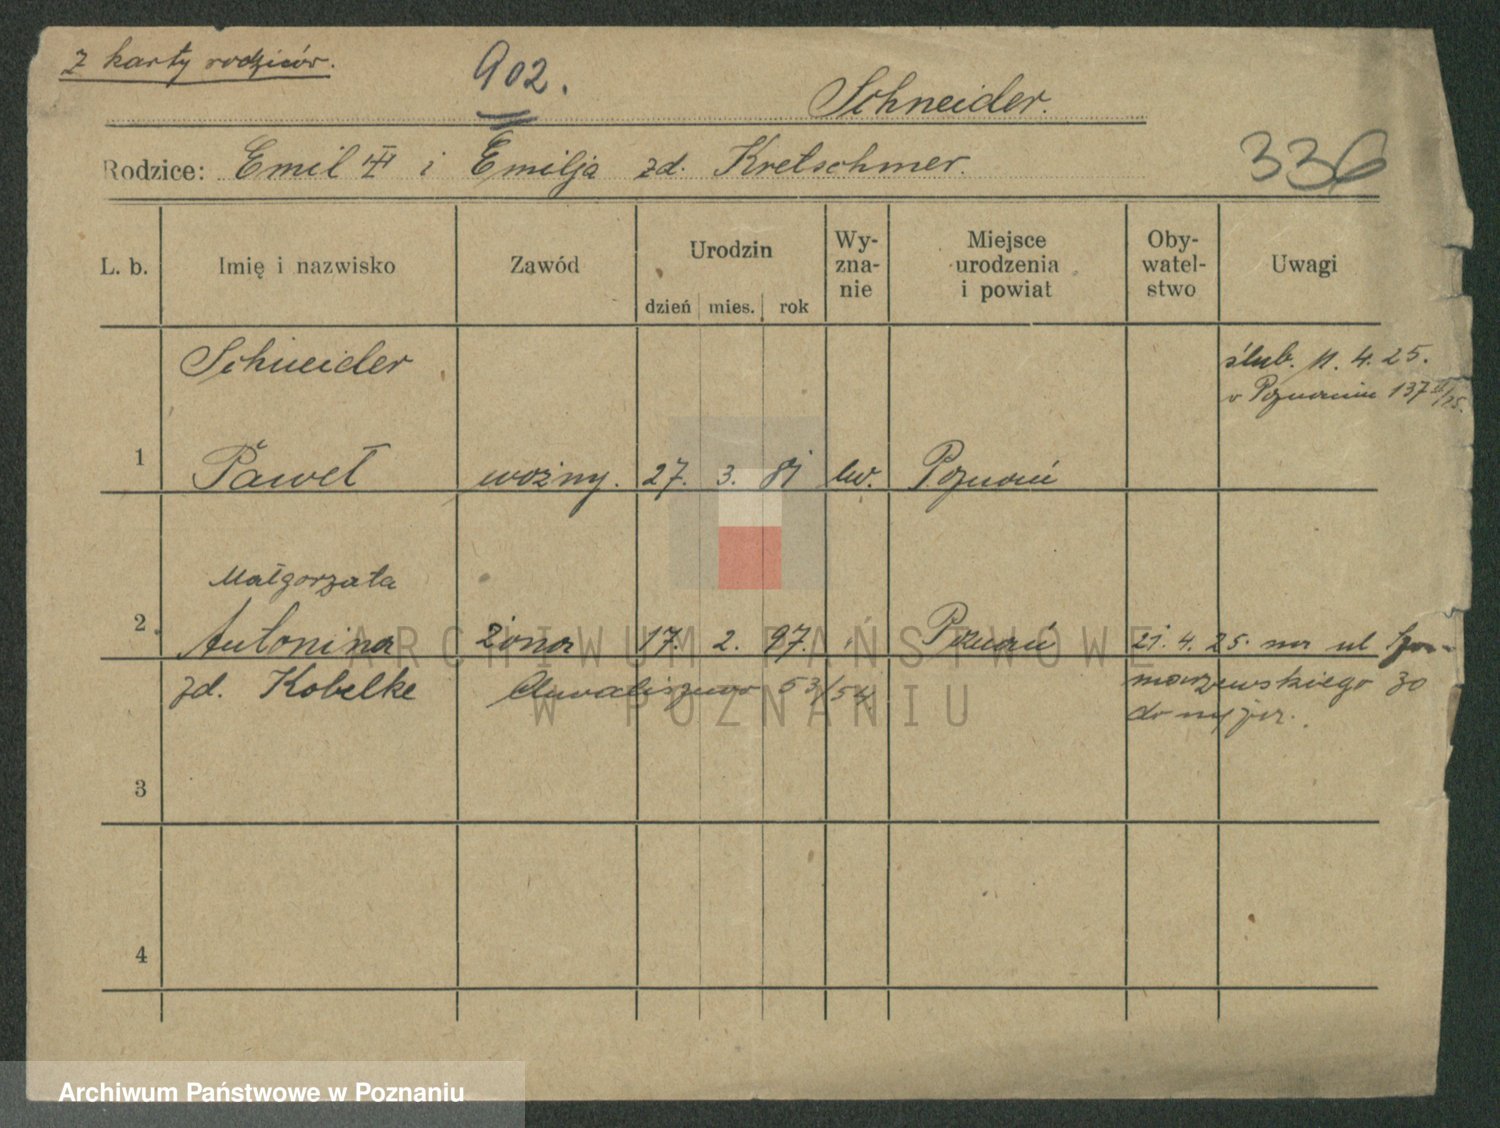 z karty rodziców.
902.
Schneider.
Rodzice: Emil III i Emilja zd. Kretschmer.
336
L. b. Imię i nazwisko Zawód Urodzin dzień mies. rok Wy-zna-nie Miejsce urodzenia i powiat Oby-watel-stwo Uwagi
Schneider
ślub. 11. 4. 25.
w Poznaniu 137
1 Paweł woźny. 27. 3. 81 ew. Poznań
Małgorzata
2 Antonina żona 17. 2. 97. " Poznań 21. 4. 25. na ul
zd. Kobelke Chwaliszewo 53/54.
marzewskiego 30
3
4
ARCHIWUM PAŃSTWOWE
W POZNANIU
Archiwum Państwowe w Poznaniu